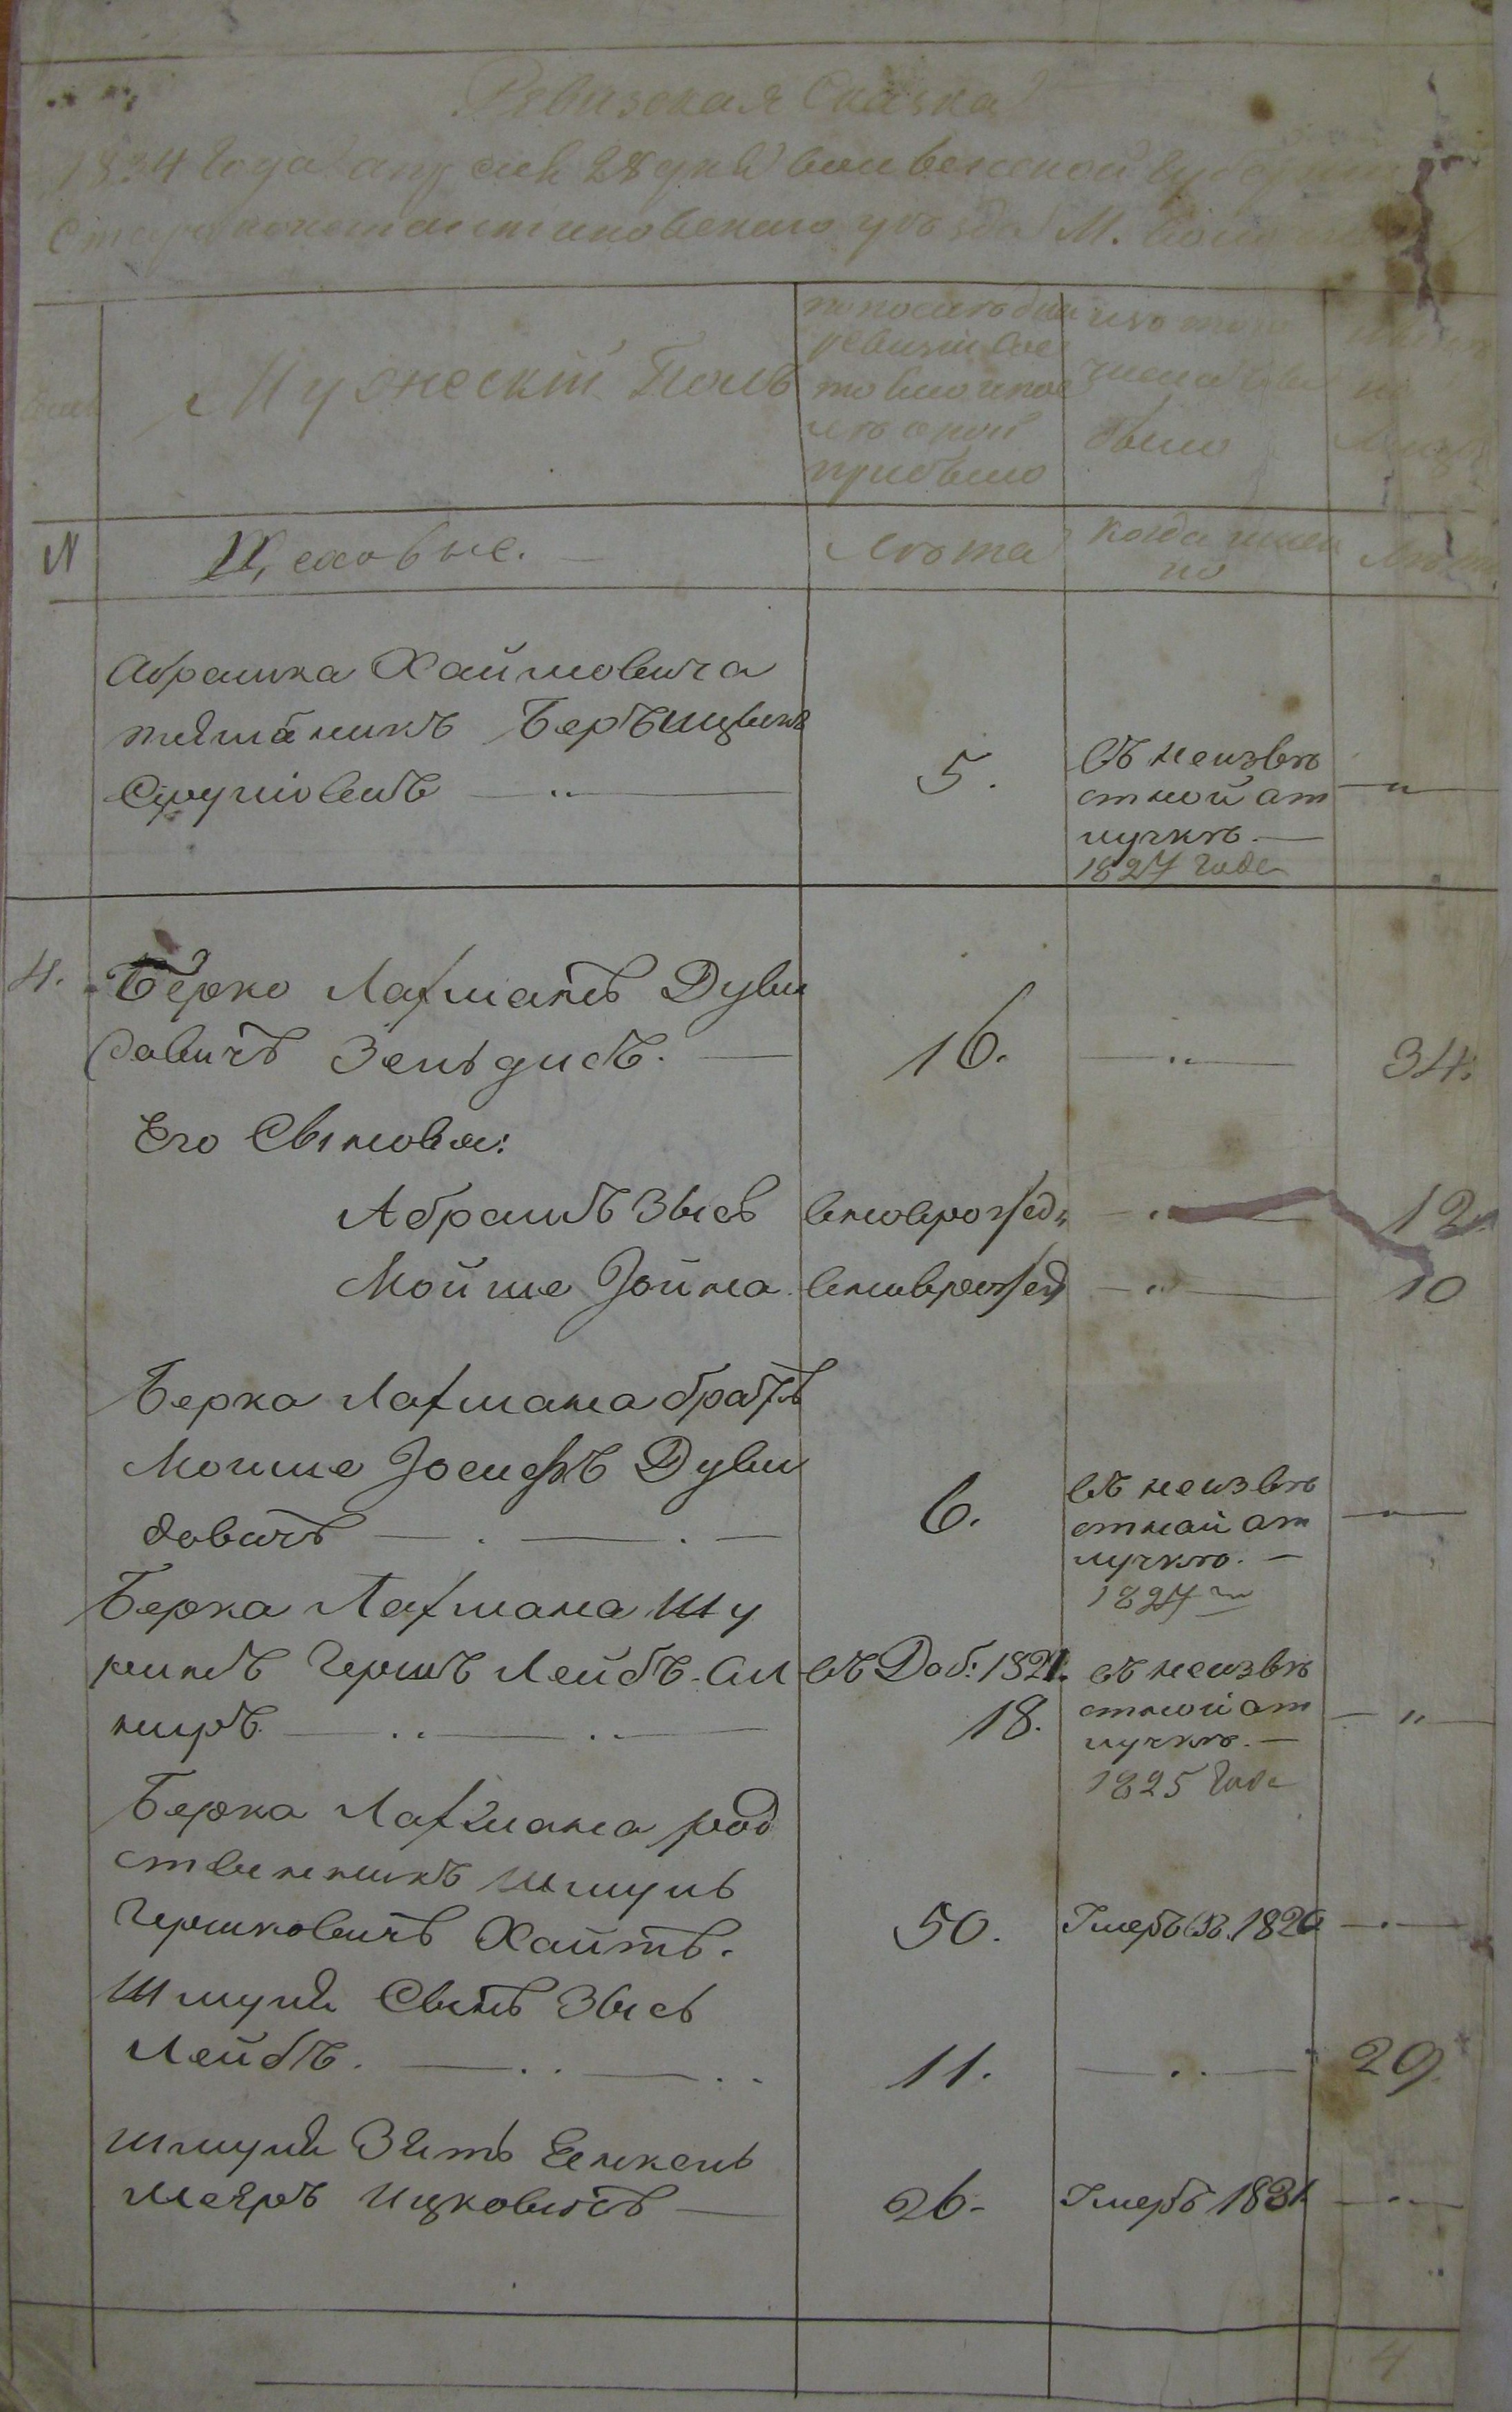 Ревизская Сказка
1834 года апреля 28 дня Волынской губернии
Староконстантиновскаго уезда М.
Мужескій Полъ
по последней
ревизіи сос
тояло и пос
ле оной
прибыло
изъ того
числа выбы
было
ныне
на
лицо
N
Цеховые. —
Лета
когда имен
но
Лета
Абрашка Хаимовича
племяникъ Беръ Ицыкъ
Сруліовичъ — „ —
5.
Въ неизве
стной от
лучке. —
1827 года
— „ —
4.
Берко Лахманъ Дуви
довичъ Зельдисъ. —
16.
— „ —
34.
Его Сыновья:
Абрамъ Зысь
вновърожд„
— „ —
12.
Мойше Іойна
вновърожд
— „ —
10
Берка Лахмана братъ
Мошке Іосифъ Дуви
довичъ — . — . —
6.
въ неизве
стной от
лучке. —
1827 го
— „ —
Берка Лахмана Шу
ринъ Гершъ Лейбъ
въ Доб: 1821.
18.
въ неизве
стной от
лучке. —
1825 года
— „ —
Берка Лахмана род
ственникъ Шмуль
Гершковичъ Хаитъ.
50.
Умеръ въ 1826
— „ —
Шмуля Сынъ Зысь
Лейбъ. — .. — ..
11.
— .. —
29.
Шмуля Зять Енкель
Меэръ Ицковичъ —
26.
Умеръ 1831
— „ —
4